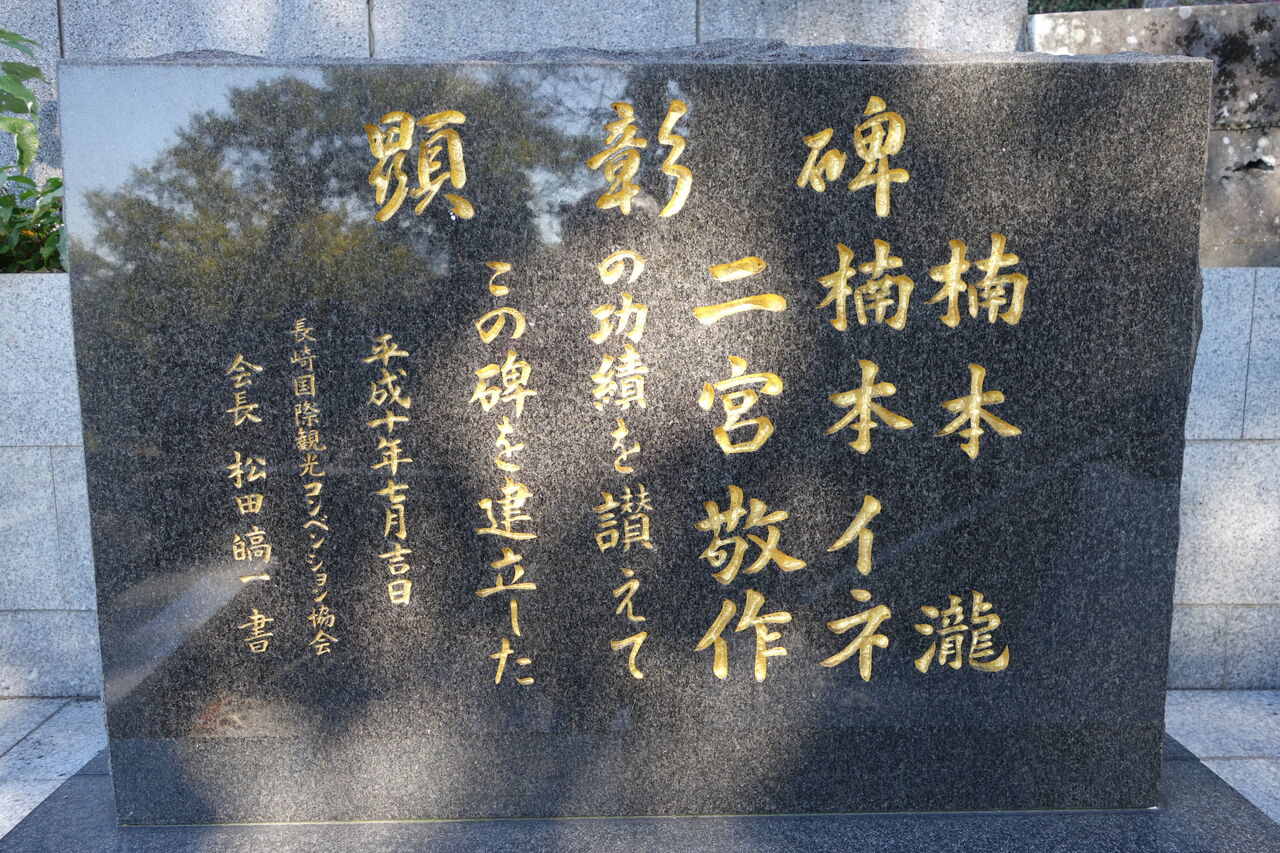 顕彰碑
楠本瀧
楠本イネ
二宮敬作
の功績を讃えて
この碑を建立した
平成十年七月吉日
長崎国際観光コンベンション協会
会長 松田皜一 書